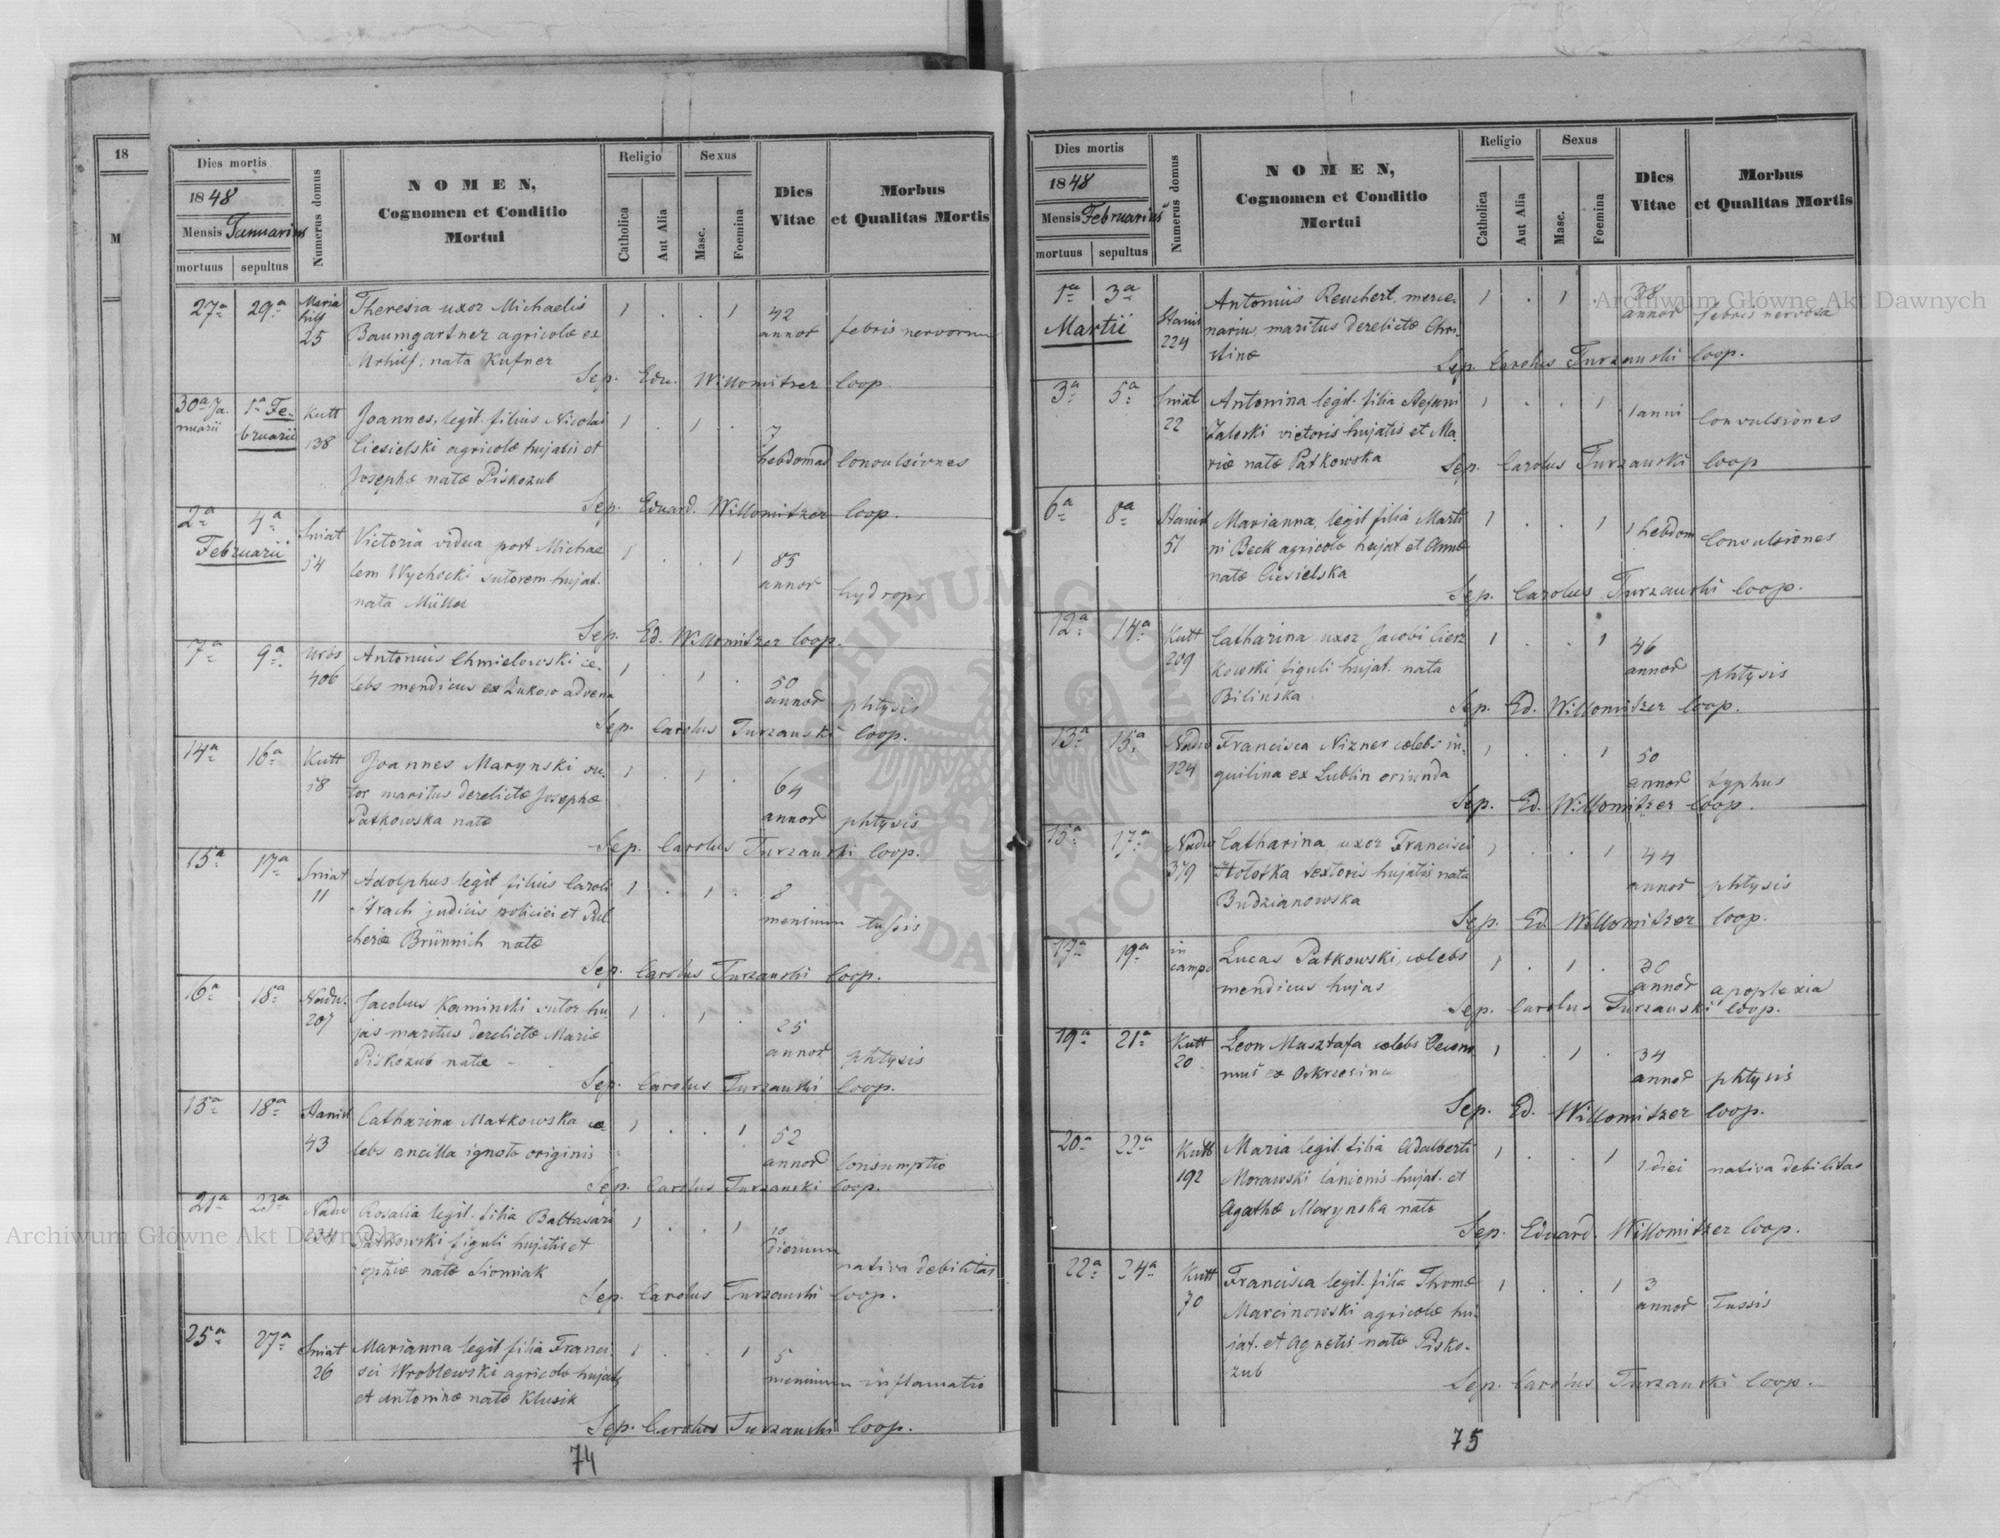 18
M
Dies mortis
1848
Mensis Januarius
mortuus sepultus
Numerus domus
NOMEN,
Cognomen et Conditio
Mortui
Religio
Catholica
Aut Alia
Sexus
Masc.
Foemina
Dies
Vitae
Morbus
et Qualitas Mortis
27a 29a Maria hilf 25 Theresia uxor Michaelis 1 . . 1 42
Baumgartner agricolæ ex annor febris nervorum
nata Kufner
Sep. Edu. Willomitzer Coop.
30a Ja- 1a Fe- Kutt Joannes, legit. filius Nicolai 1 . 1 . 7
nuarii bruarii 138 Ciesielski agricolæ hujatis et hebdomad Convulsiones
Josephæ natæ Piskozub
Sep. Eduard. Willomitzer Coop.
2a 4a Sniat Victoria vidua post Michae 1 . . 1 85
Februarii 54 lem Wychocki sutorem hujat. annor hydrops
nata Müller
Sep. Ed. Willomitzer Coop.
7a 9a Urbs Antonius Chmielowski cæ- 1 . 1 . 50
406 lebs mendicus ex Zukow advena annor phtysis
Sep. Carolus Turzanski Coop.
14a 16a Kutt Joannes Marynski su- 1 . 1 . 64
58 tor maritus derelictæ Josephæ annor phtysis
Patkowska natæ
Sep. Carolus Turzanski Coop.
15a 17a Sniat Adolphus legit filius Caroli 1 . 1 . 8
11 Strach judicis policiei et Pul mensium tussis
cheriæ Brünnich natæ
Sep. Carolus Turzanski Coop.
16a 18a Nadw. Jacobus Kaminski sutor hu- 1 . 1 . 25
207 jas maritus derelictæ Mariæ annor phtysis
Piskozub natæ
Sep. Carolus Turzanski Coop.
15a 18a Stanisl Catharina Matkowska cæ- 1 . . 1 52
43 lebs ancilla ignotæ originis annor Consumptio
Sep. Carolus Turzanski Coop.
21a 23a Nadw Rosalia legit. filia Baltasari 1 . . 1 10
234 Patkowski figuli hujatis et dierum nativa debilitas
ophiæ natæ Slomiak
Sep. Carolus Turzanski Coop.
25a 27a Sniat Marianna legit filia Franci- 1 . . 1 5
26 sci Wroblewski agricolæ hujatis mensium inflamatio
et Antoninæ natæ Klusik
Sep. Carolus Turzanski Coop.
74
Dies mortis
1848
Mensis Februarius
mortuus sepultus
Numerus domus
NOMEN,
Cognomen et Conditio
Mortui
Religio
Catholica
Aut Alia
Sexus
Masc.
Foemina
Dies
Vitae
Morbus
et Qualitas Mortis
1a 3a Stanisl Antonius Reuchert merce- 1 . 1 . 38
Martii 224 narius, maritus derelictæ Chri- annor febris nervosa
stinæ
Sep. Carolus Turzanski Coop.
3a 5a Sniat Antonina legit. filia Stefani 1 . . 1 1 anni Convulsiones
22 Zaleski victoris hujatis et Ma-
riæ natæ Patkowska
Sep. Carolus Turzanski Coop
6a 8a Stanisl Marianna legit filia Marti 1 . . 1 1 hebdom Convulsiones
51 ni Beck agricolæ hujat et Annæ
natæ Ciesielska
Sep. Carolus Turzanski Coop.
12a 14a Kutt Catharina uxor Jacobi Cierz 1 . . 1 46
209 kowski figuli hujat. nata annor phtysis
Bilinska
Sep. Ed. Willomitzer Coop.
13a 15a Nadw Francisca Nizner cælebs in- 1 . . 1 50
124 quilina ex Lublin oriunda annor typhus
Sep. Ed. Willomitzer Coop.
15a 17a Nadw Catharina uxor Francisci 1 . . 1 44
379 Holotka textoris hujatis nata annor phtysis
Budzianowska
Sep. Ed Willomitzer Coop.
17a 19a in Lucas Patkowski, cælebs 1 . 1 . 30
campo mendicus hujas annor apoplexia
Sep. Carolus Turzanski Coop.
19a 21a Kutt Leon Musztafa cælebs Oecono 1 . 1 . 34
20 mus ex Okrzesince annor phtysis
Sep. Ed. Willomitzer Coop.
20a 22a Kutt Maria legit. filia Adalberti 1 . . 1 1 diei nativa debilitas
192 Morawski lanionis hujat. et
Agathæ Marynska natæ
Sep. Eduard. Willomitzer Coop.
22a 24a Kutt Francisca legit. filia Thomæ 1 . . 1 3
70 Marcinowski agricolæ hu- annor Tussis
jat. et Agnetis natæ Pisko-
zub
Sep. Carolus Turzanski Coop.
75
Archiwum Główne Akt Dawnych
Archiwum Główne Akt Dawnych
ARCHIWUM GŁÓWNE AKT DAWNYCH